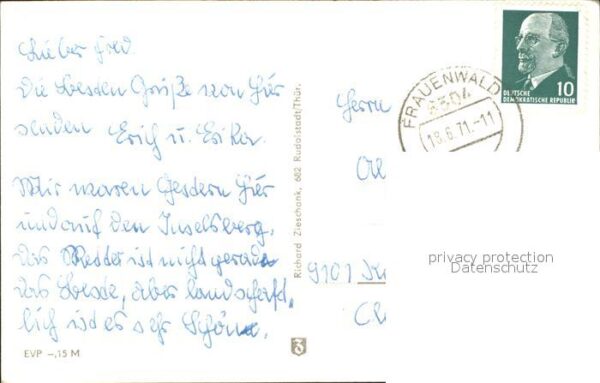 Lieber Fred
Die besten Grüße von hier
senden Erich u. Erika.
Wir waren Gestern hier
und auf den Inselsberg.
Das Wetter ist nicht gerade
das beste, aber landschaft-
lich ist es sehr Schön.
EVP -,15 M
Richard Zieschank, 682 Rudolstadt/Thür.
3
FRAUENWALD
6304
18.6.71.-11
10
DEUTSCHE
DEMOKRATISCHE REPUBLIK
Herrn
9101
privacy protection
Datenschutz